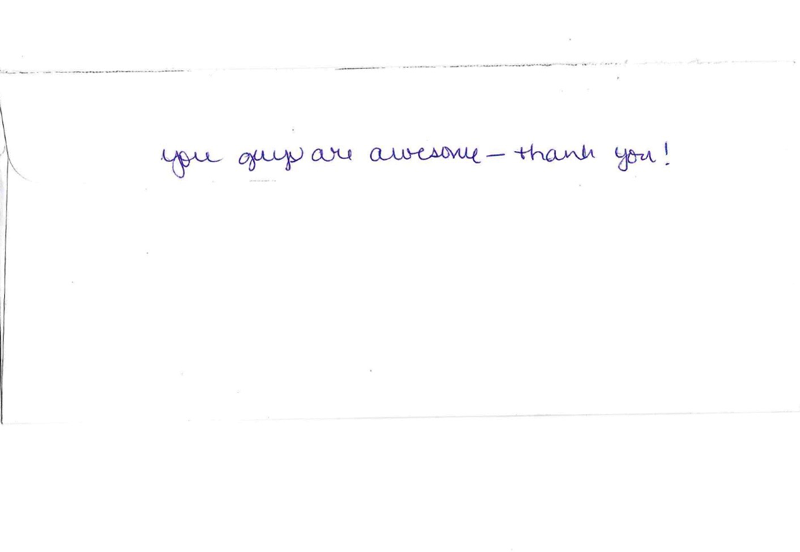 you guys are awesome – thank you!